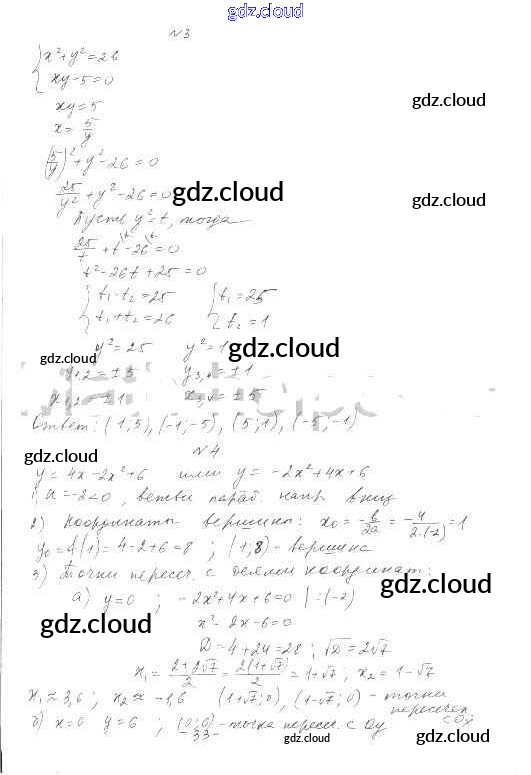 gdz.cloud
N3
{x²+y²=26
xy-5=0
gdz.cloud
xy=5
x=5/y
(5/y)²+y²-26=0
gdz.cloud
25/y²+y²-26=0
gdz.cloud
Пусть y²=t, тогда
25/t+t-26=0
t²-26t+25=0
{t₁·t₂=25 {t₁=25
t₁+t₂=26 t₂=1
y²=25 y²=1
gdz.cloud
gdz.cloud
y₁,₂=±5 y₃,₄=±1
x₁,₂=±1 x₃,₄=±5
Ответ: (1;5), (-1;-5), (5;1), (-5;-1)
N4
gdz.cloud
gdz.cloud
y=4x-2x²+6 или y=-2x²+4x+6
1) a=-2<0, ветви параб. напр. вниз
2) Координаты вершины: x₀=-b/2a=-4/2·(-2)=1
gdz.cloud
y₀=4(1)=4-2+6=8 ; (1;8)-вершина
3) Точки пересеч. с осями координат:
gdz.cloud
а) y=0 ; -2x²+4x+6=0 |:(-2)
x²-2x-6=0
gdz.cloud
gdz.cloud
D=4+24=28 ; √D=2√7
x₁=2+2√7/2=2(1+√7)/2=1+√7 ; x₂=1-√7
x₁≈3,6 ; x₂≈-1,6 (1+√7;0), (1-√7;0)-точки
пересечен.
с Ox
б) x=0 y=6 ; (0;6)-точка пересеч. с Oy
-33-
gdz.cloud
gdz.cloud